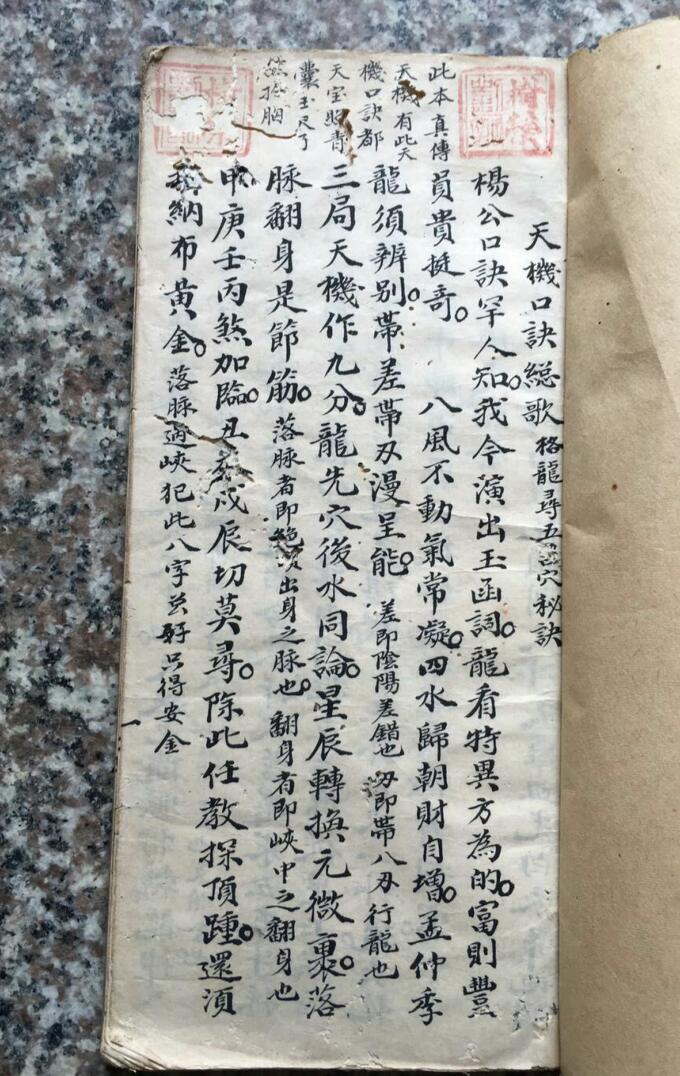 天機口訣総歌 格龍尋五 穴秘訣
楊公口訣罕人知我今演出玉函詞龍看特異方為的富則豐
員貴挺奇 八風不動氣常凝四水歸朝財自增孟仲季
龍須辨別帶差帶刃漫呈能 差即陰陽差錯也 刃即帶八刃行龍也
三局天機作九分龍先穴後水同論星辰轉換元微裏落
脉翻身是節筋 落脉者即絕 出身之脉也 翻身者即峽中之翻身也
甲庚壬丙煞加臨丑 戍辰切莫尋除此任教探頂踵還須
納布黃金 落脉過峽犯此八字 只得安金
此本真傳
天機有此天
機口訣都
天宝照青
囊玉尺了
胸
一